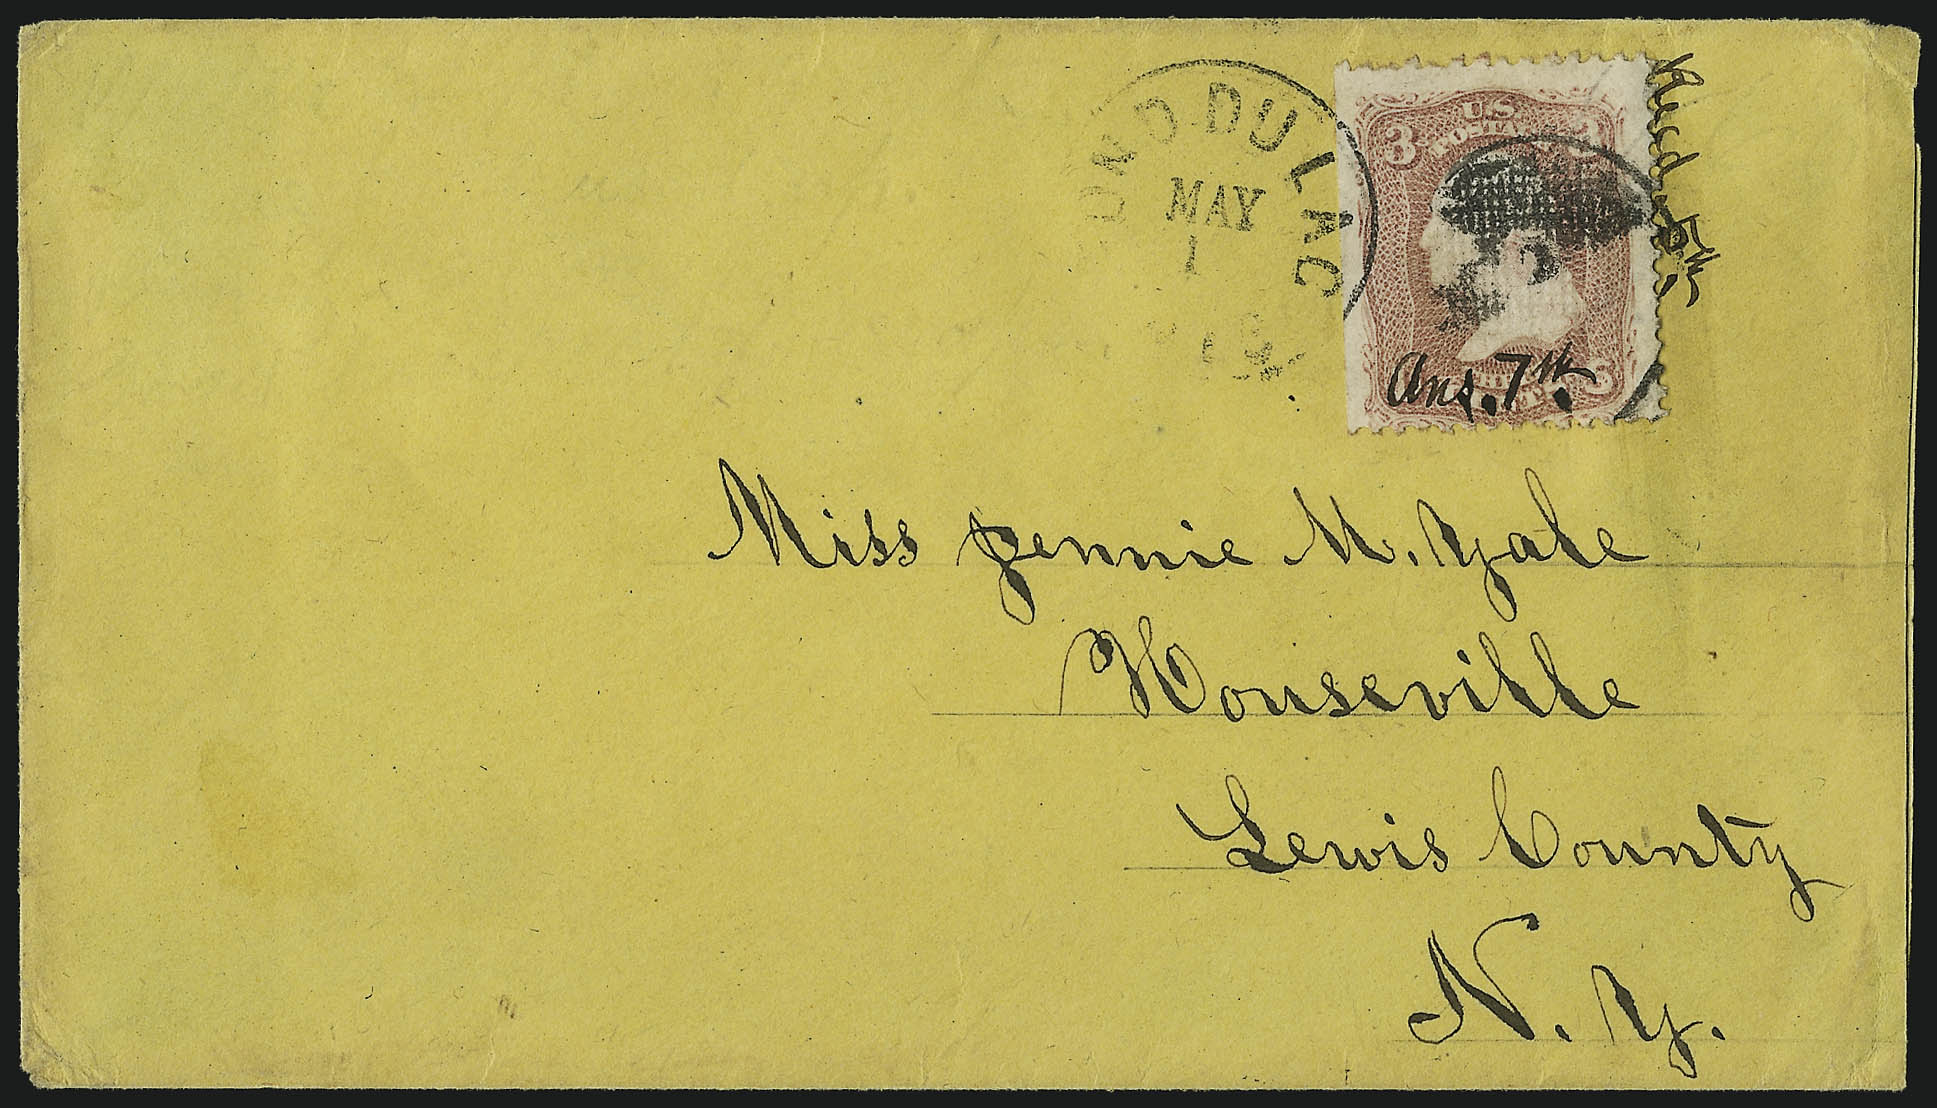 DU LAC
MAY
1
U.S.
3 3
Recd 5th.
Ans. 7th.
Miss Jennie M. Yale
Houseville
Lewis County
N. Y.